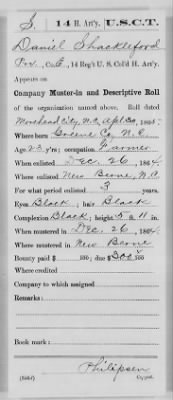 S. 14 H. Art'y. U.S.C.T.
Daniel Shackleford
Pvt., Co. E, 14 Reg't U. S. Col'd H. Art'y.
Appears on
Company Muster-in and Descriptive Roll
of the organization named above. Roll dated
Morehead City, N.C. Apl. 30, 1865.
Where born Greene Co. N.C.
Age 23 y'rs; occupation Farmer
When enlisted Dec. 26, 1864.
Where enlisted New Berne, N.C.
For what period enlisted 3 years.
Eyes Black; hair Black
Complexion Black; height 5 ft. 11 in.
When mustered in Dec. 26, 1864.
Where mustered in New Berne
Bounty paid $ 100; due $300 100
Where credited
Company to which assigned
Remarks:
Book mark:
Philipsen
Copyist.